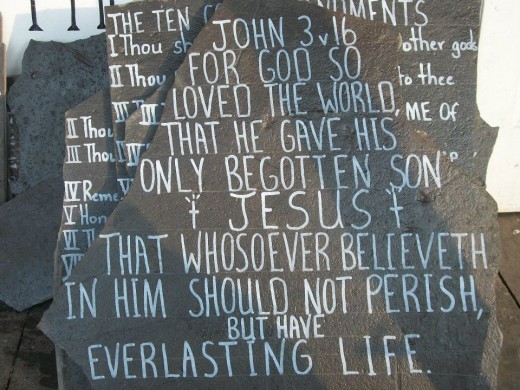 JOHN 3 v 16
FOR GOD SO
LOVED THE WORLD,
THAT HE GAVE HIS
ONLY BEGOTTEN SON
JESUS
THAT WHOSOEVER BELIEVETH
IN HIM SHOULD NOT PERISH,
BUT HAVE
EVERLASTING LIFE.
THE TEN
I Thou
other gods
II Thou
to thee
III
ME OF
IV
II Thou
III Thou
IV Reme
V Hon
VI Th
VII